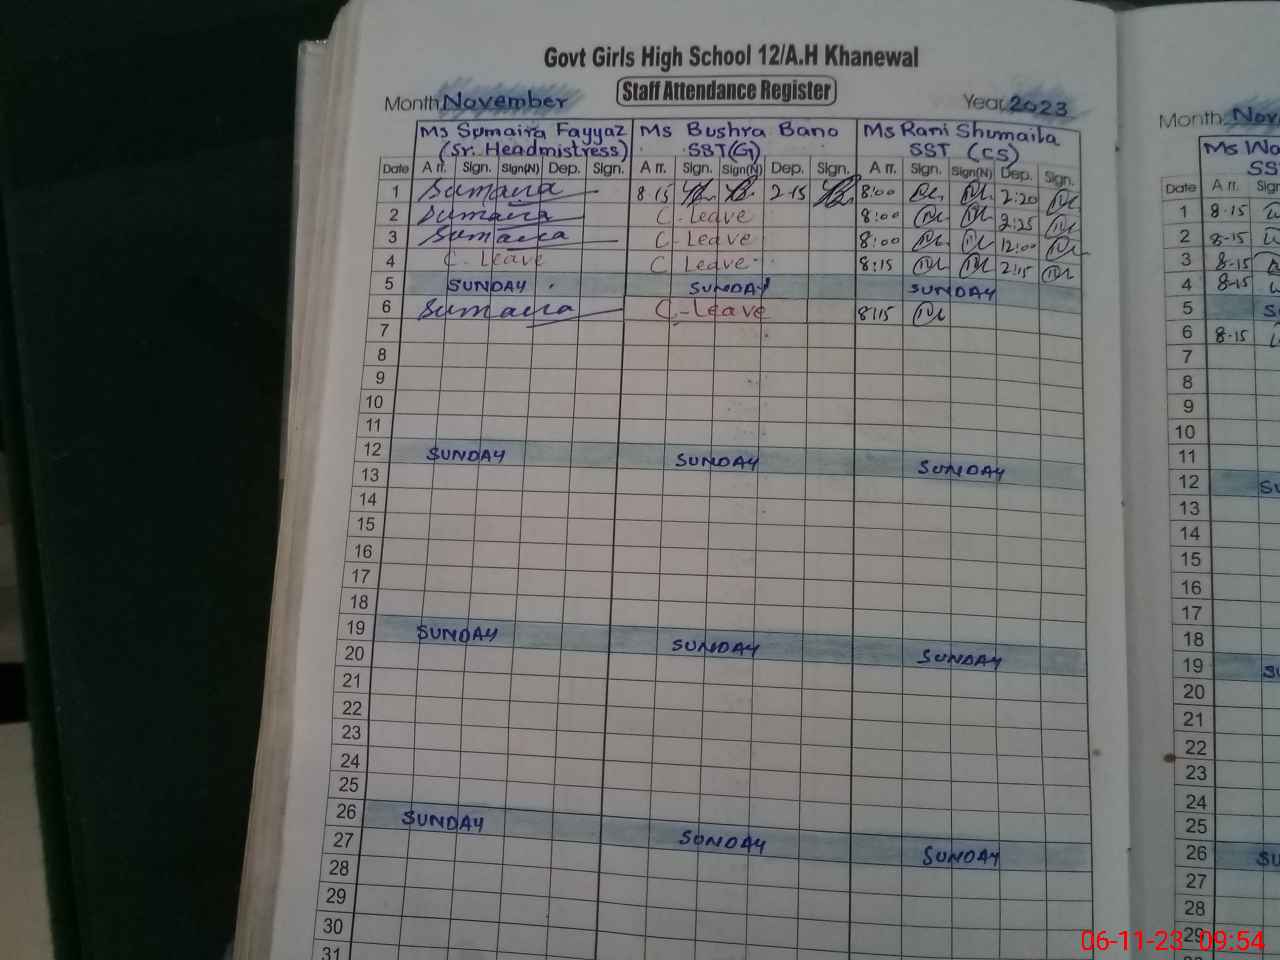 Govt Girls High School 12/A.H Khanewal
Staff Attendance Register
Month November Year 2023
Ms Sumaira Fayyaz Ms Bushra Bano Ms Rani Shumaila
(Sr. Headmistress) SST(G) SST (CS)
Date Arr. Sign. Sign(N) Dep. Sign. Arr. Sign. Sign(N) Dep. Sign. Arr. Sign. Sign(N) Dep. Sign.
1 Sumaira 8-15 2-15 8:00 2:20
2 Sumaira C-Leave 8:00 2:25
3 Sumaira C-Leave 8:00 12:00
4 C-Leave C Leave 8:15 2:15
5 SUNDAY SUNDAY SUNDAY
6 Sumaira C-Leave 8:15
7
8
9
10
11
12 SUNDAY SUNDAY SUNDAY
13
14
15
16
17
18
19 SUNDAY SUNDAY SUNDAY
20
21
22
23
24
25
26 SUNDAY SUNDAY SUNDAY
27
28
29
30
31
Month
Ms
Date Arr.
1 8-15
2 8-15
3 8-15
4 8-15
5
6 8-15
7
8
9
10
11
12
13
14
15
16
17
18
19
20
21
22
23
24
25
26
27
28
29
06-11-23 09:54